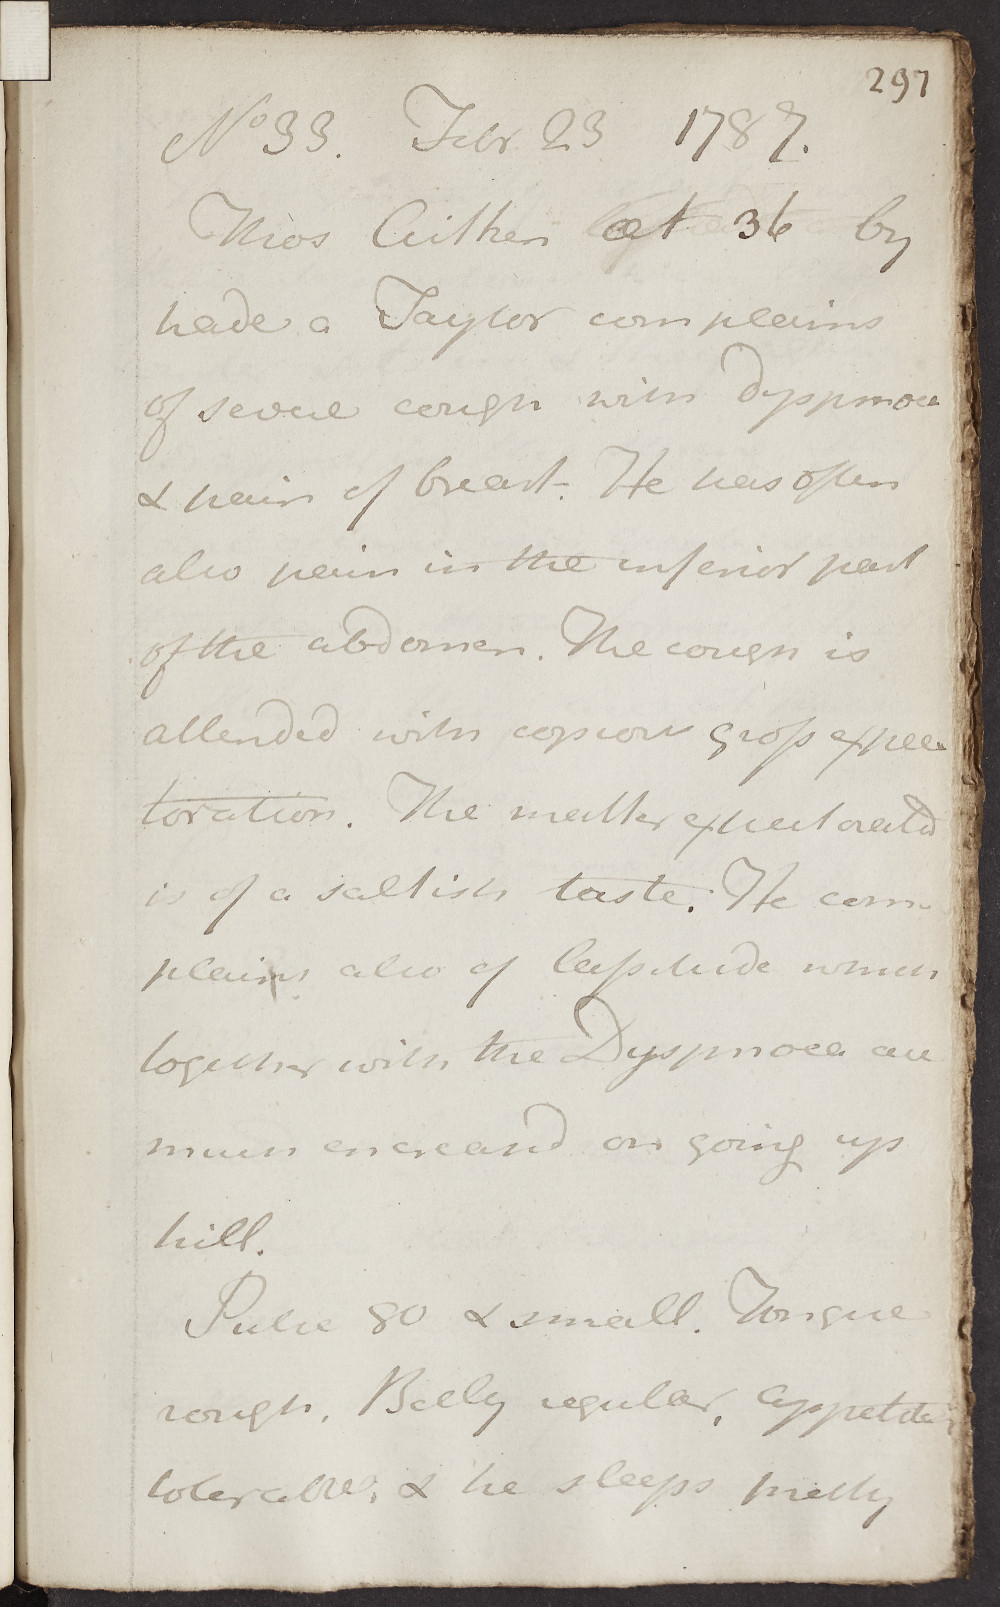 297
No 33. Febr 23 1787.
Thos Aitken æt 36 by
trade a Taylor complains
of severe cough with Dyspnoea
& pain of breast. He has often
also pain in the inferior part
of the abdomen. The cough is
attended with copious gross expec
toration. The matter expectorated
is of a saltish taste. He com-
plains also of lassitude which
together with the Dyspnoea are
much encreased on going up
hill.
Pulse 80 & small. Tongue
rough, Belly regular, appetite
tolerable, & he sleeps pretty